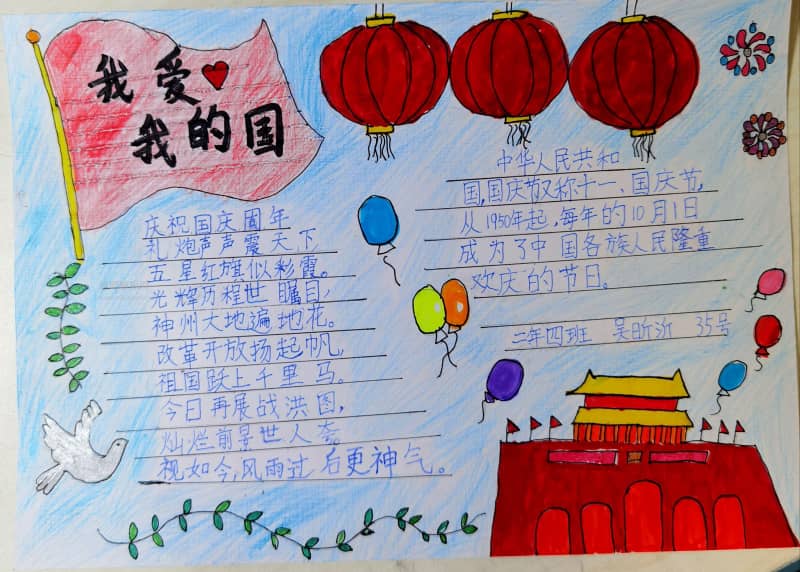 我爱
我的国
庆祝国庆周年
礼炮声声震天下
五星红旗似彩霞。
光辉历程世瞩目,
神州大地遍地花。
改革开放扬起帆,
祖国跃上千里马。
今日再展战洪图,
灿烂前景世人夸。
视如今,风雨过后更神气。
中华人民共和
国,国庆节又称十一、国庆节,
从1950年起,每年的10月1日
成为了中国各族人民隆重
欢庆的节日。
二年四班 吴昕沂 35号